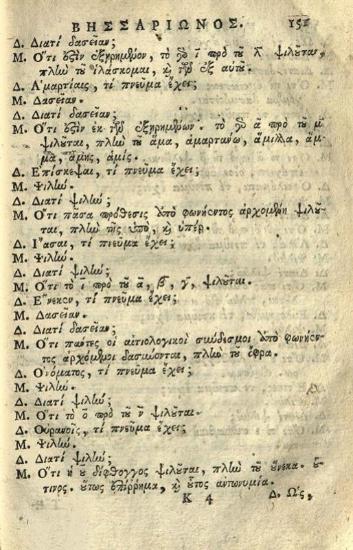 ΒΗΣΣΑΡΙΩΝΟΣ. 151
Δ. Διατί δασεῖαν;
Μ. Ὅτι ἐστὶν ἐξῃρημένον, τὸ γὸ ι πρὸ τοῦ λ ψιλοῦται,
πλὴν τοῦ ἱλάσκομαι, καὶ τῶν ἐξ αὐτοῦ.
Δ. Ἁμαρτίαις, τί πνεῦμα ἔχει;
Μ. Δασεῖαν.
Δ. Διατί δασεῖαν;
Μ. Ὅτι ἐστὶν ἐκ τῶν ἐξῃρημένων. τὸ γὸ α πρὸ τοῦ μ
ψιλοῦται, πλὴν τοῦ ἅμα, ἁμαρτάνω, ἅμιλλα, ἅμ-
μα,
Δ. Ἐπίσκεψαι, τί πνεῦμα ἔχει;
Μ. Ψιλήν.
Δ. Διατί ψιλήν;
Μ. Ὅτι πᾶσα πρόθεσις ἀπὸ φωνήεντος ἀρχομένη ψιλοῦ-
ται, πλὴν τῆς ὑπὸ, καὶ ὑπέρ.
Δ. Ἴασαι, τί πνεῦμα ἔχει;
Μ. Ψιλήν.
Δ. Διατί ψιλήν;
Μ. Ὅτι τὸ ι πρὸ τοῦ α, β, γ, ψιλοῦται.
Δ. Ἕνεκεν, τί πνεῦμα ἔχει;
Μ. Δασεῖαν.
Δ. Διατί δασεῖαν;
Μ. Ὅτι πάντες οἱ αἰτιολογικοὶ σύνδεσμοι ἀπὸ φωνήεν-
τος ἀρχόμενοι δασύνονται, πλὴν τοῦ ὄφρα.
Δ. Ὀνόματος, τί πνεῦμα ἔχει;
Μ. Ψιλήν.
Δ. Διατί ψιλήν;
Μ. Ὅτι τὸ ο πρὸ τοῦ ν ψιλοῦται.
Δ. Οὐρανοῖς, τί πνεῦμα ἔχει;
Μ. Ψιλήν.
Δ. Διατί ψιλήν;
Μ. Ὅτι ἡ ου δίφθογγος ψιλοῦται, πλὴν τοῦ οὕνεκα. οὕ-
τινος. οὕτως ἐπίρρημα, καὶ οὗτος ἀντωνυμία.
Κ 4 Δ. Ὡς,